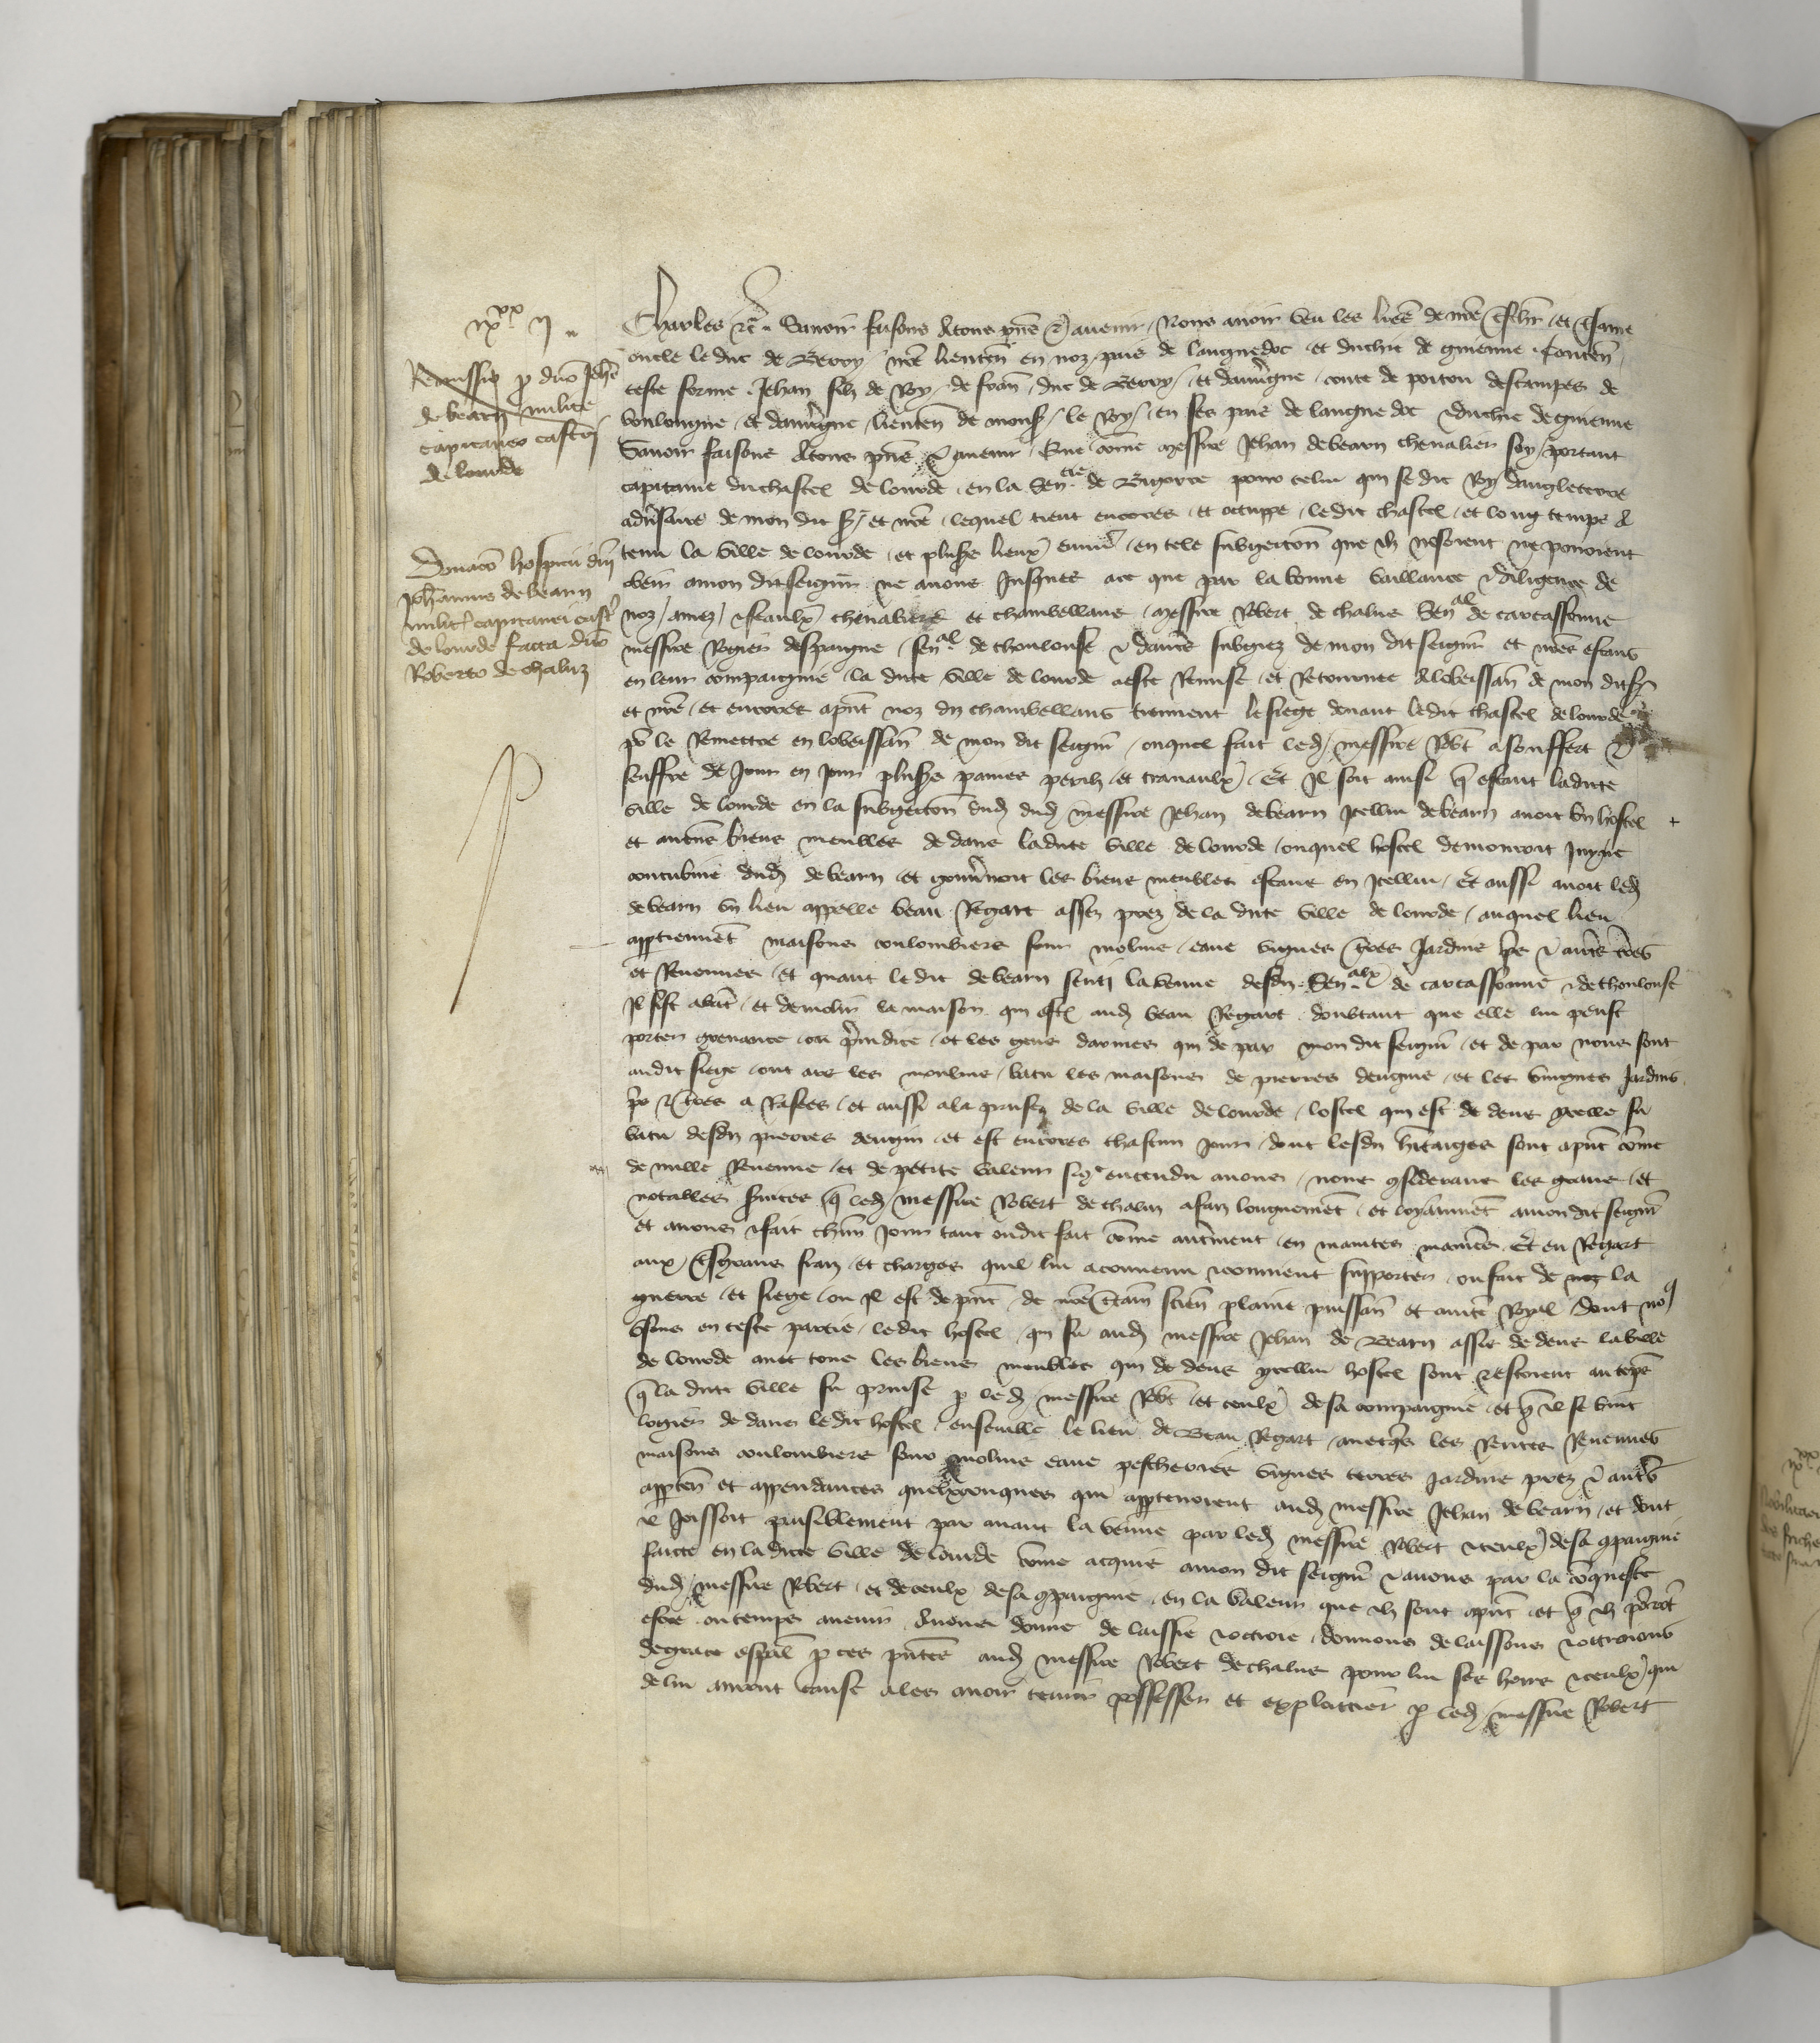 ixxx ij
Remissio p dño Johe
de bearn milite
capitaneo castri
de lourde
Donacō hospicii dñi
Johannis de bearn
milit capitanei castr
de lourde facta dño
Roberto de chaluz
Charles etc̃ Savoir faisons a tous pñs et avenir / Nous avoir veu les lrẽs de nrẽ treschr et tresame
oncle le duc de Berry nrẽ lieuteñ en noz pais de languedoc et duchie de guienne conteñ
ceste forme Jehan filz de Roy de frañ duc de Berry et dauvgne conte de poitou destampes de
bouloingne et dauvgne lieuteñ de monsr le Roy en ses pais de languedoc et duchie de guienne
Savoir faisons a tous pñs et avenir Que cõme messire Jehan de bearn chevalier soy portant
capitaine du chastel de lourde en la Seneẽie de Bigorre pour celui qui se dit Roy dangleterre
advsaire de mon dit sr et nrẽ lequel tient encores et occuppe le dit chastel et long temps a
tenu la ville de lourde et plusrs lieux env en tele subgeccoñ que ilz nosoient ne povoient
obeir a mon dit seignr ne a nous Jusques a ce que par la bonne vaillance et diligence de
noz amez et feaulx chevaliers et chambellans messire Robert de chalus Senal de carcassonne
messire Rogier despaigne senal de thoulouse et dautrs subgiez de mon dit seignr et nrẽs estans
en leur compaignie la dite ville de lourde a este Remise et Retournee a lobeissañ de mon dit sr
et nrẽ et encores apñt noz diz chambellans tiennent le siege devant le dit chastel de lourde
po le Remettre en lobeissañ de mon dit seignr ouquel fait led messire Robt a souffert et
seuffre de Jour en Jour plusrs paines perilz et travaulx Et Il soit ainsi q̃ estant ladite
ville de lourde en la subgeccoñ dud messire Jehan de bearn Icellui de bearn avoit un hostel
et autrs biens meubles dedans ladite ville de lourde ouquel hostel demouroit
concubine dud de bearn et gouvnoit les biens meubles estans en Icellui Et aussi avoit led
de bearn un lieu appelle beau Regart assez prez de la dite ville de lourde auquel lieu
apptiennẽt maisons coulombiers four molins eaue vignes trẽs Jardins prẽs et autrs trẽs
et Revenues et quant le dit de bearn senti la venue desdiz Senalx de carcassonne et de thoulouse
Il fist abatr et demolir la maison qui est aud beau Regart doubtant que elle lui peust
porter grevance ou preiudice et les gens darmes qui de par mon dit seignr et de par nous sont
au dit siege ont ars les moulins batu les maisons de pierres dengins et les vignes Jardins
prẽ et trẽs a Rasees et aussi a la prinse de la ville de lourde lostel qui est dedens ycelle fu
batu desdiz pierres dengin et est encores chascun Jour dont lesdiz hritaiges sont apñt cõme
de nulle Revenue et de petite valeur sicõe entendu avons Nous considerans les grans et
notables services q̃ led messire Robert de chalus a faiz longuemẽt et loyaumẽt a mon dit seignr
et a nous et fait chũn Jour tant ou dit fait cõme autrment en maintes manrẽs Et eu Regart
aux tresgrans fraiz et charges quil lui a convenu et convient supporter ou fait de la
guerre et siege ou Il est de pñt de nrẽ ctaiñ scieñ plaine puissañ et auctẽ Royal dont nos
usons en ceste partie le dit hostel qui fu aud messire Jehan de Bearn assis dedens la ville
de lourde avec tous les biens meubles qui dedens ycellui hostel sont et estoient au temps
q̃ la dite ville fu prinse p led messire Robt et ceulx de sa compaignie et q̃ Il se vint
logier dedans le dit hostel ensemble le lieu de Beau Regart avecqs les Rentes Revenues
maisons coulombiers four molins eaue pescheries vignes terres Jardins prez et autrs
apparteñ et appendances quelxconques qui appartenoient aud messire Jehan de bearn et dont
il Joissoit paisiblement par avant la venue par led messire Robert et ceulx de sa compaignie
faicte en la dicte ville de lourde cõme acquis a mon dit seignr et a nous par la conqueste
dud messire Robert et de ceulx de sa compaignie en la valeur que ilz sont apñt et q̃ ilz porrõt
estre ou temps avenir Avons donne de laissie et octroie donnons de laissons et ottroions
de grace espal p ces pñtes aud messire Robert de chalus pour lui ses hoirs et ceulx qui
de lui auront cause a les avoir tenir possesser et exploictier p led messire Robert